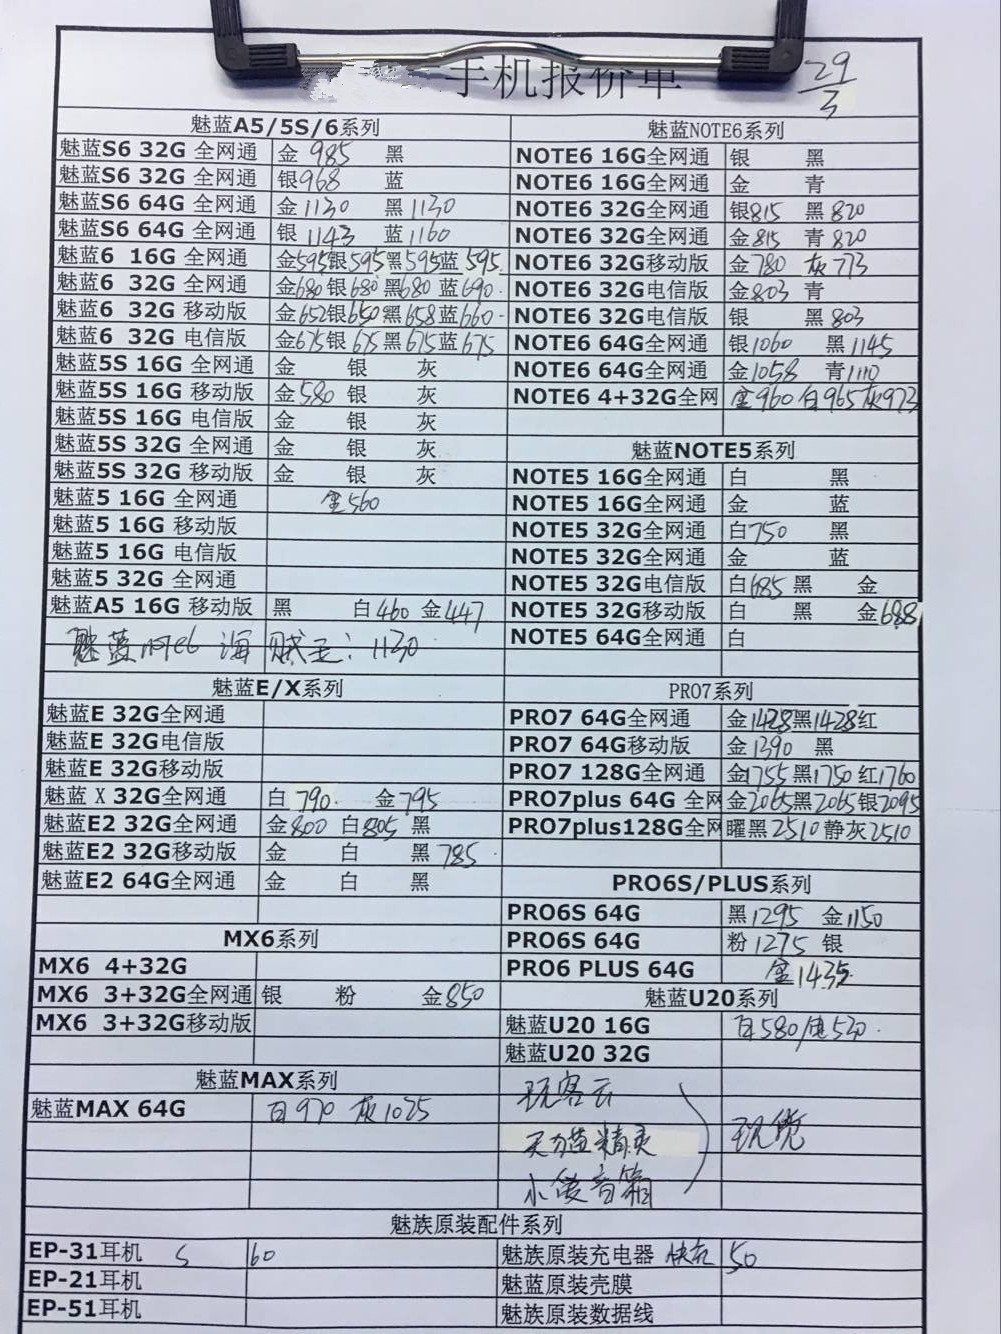 手机报价单
29/3
魅蓝A5/5S/6系列
魅蓝S6 32G 全网通 金 985 黑
魅蓝S6 32G 全网通 银968 蓝
魅蓝S6 64G 全网通 金1130 黑1130
魅蓝S6 64G 全网通 银 1143 蓝1160
魅蓝6 16G 全网通 金595银595黑595蓝595
魅蓝6 32G 全网通 金680银680黑680蓝690
魅蓝6 32G 移动版 金652银650黑658蓝660
魅蓝6 32G 电信版 金675银675黑675蓝675
魅蓝5S 16G 全网通 金 银 灰
魅蓝5S 16G 移动版 金580 银 灰
魅蓝5S 16G 电信版 金 银 灰
魅蓝5S 32G 全网通 金 银 灰
魅蓝5S 32G 移动版 金 银 灰
魅蓝5 16G 全网通 金560
魅蓝5 16G 移动版
魅蓝5 16G 电信版
魅蓝5 32G 全网通
魅蓝A5 16G 移动版 黑 白460 金447
魅蓝note6 海贼王:1130
魅蓝E/X系列
魅蓝E 32G全网通
魅蓝E 32G电信版
魅蓝E 32G移动版
魅蓝X 32G全网通 白 790 金795
魅蓝E2 32G全网通 金800 白805 黑
魅蓝E2 32G移动版 金 白 黑785
魅蓝E2 64G全网通 金 白 黑
MX6系列
MX6 4+32G
MX6 3+32G全网通 银 粉 金850
MX6 3+32G移动版
魅蓝MAX系列
魅蓝MAX 64G 白970 灰1025
魅蓝NOTE6系列
NOTE6 16G全网通 银 黑
NOTE6 16G全网通 金 青
NOTE6 32G全网通 银815 黑820
NOTE6 32G全网通 金815 青820
NOTE6 32G移动版 金780 灰773
NOTE6 32G电信版 金803 青
NOTE6 32G电信版 银 黑803
NOTE6 64G全网通 银1060 黑1145
NOTE6 64G全网通 金1058 青1110
NOTE6 4+32G全网 金960 白965灰973
魅蓝NOTE5系列
NOTE5 16G全网通 白 黑
NOTE5 16G全网通 金 蓝
NOTE5 32G全网通 白750 黑
NOTE5 32G全网通 金 蓝
NOTE5 32G电信版 白685 黑 金
NOTE5 32G移动版 白 黑 金688
NOTE5 64G全网通 白
PRO7系列
PRO7 64G全网通 金1428黑1428红
PRO7 64G移动版 金1390 黑
PRO7 128G全网通 金1755黑1750红1760
PRO7plus 64G 全网 金2065黑2065银2095
PRO7plus128G全网 曜黑2510静灰2510
PRO6S/PLUS系列
PRO6S 64G 黑1295 金1150
PRO6S 64G 粉1275 银
PRO6 PLUS 64G 金1435
魅蓝U20系列
魅蓝U20 16G 白580/电530
魅蓝U20 32G
玩客云
天猫精灵
小爱音箱
魅族原装配件系列
EP-31耳机 60
EP-21耳机
EP-51耳机
魅族原装充电器 快充 50
魅蓝原装壳膜
魅族原装数据线